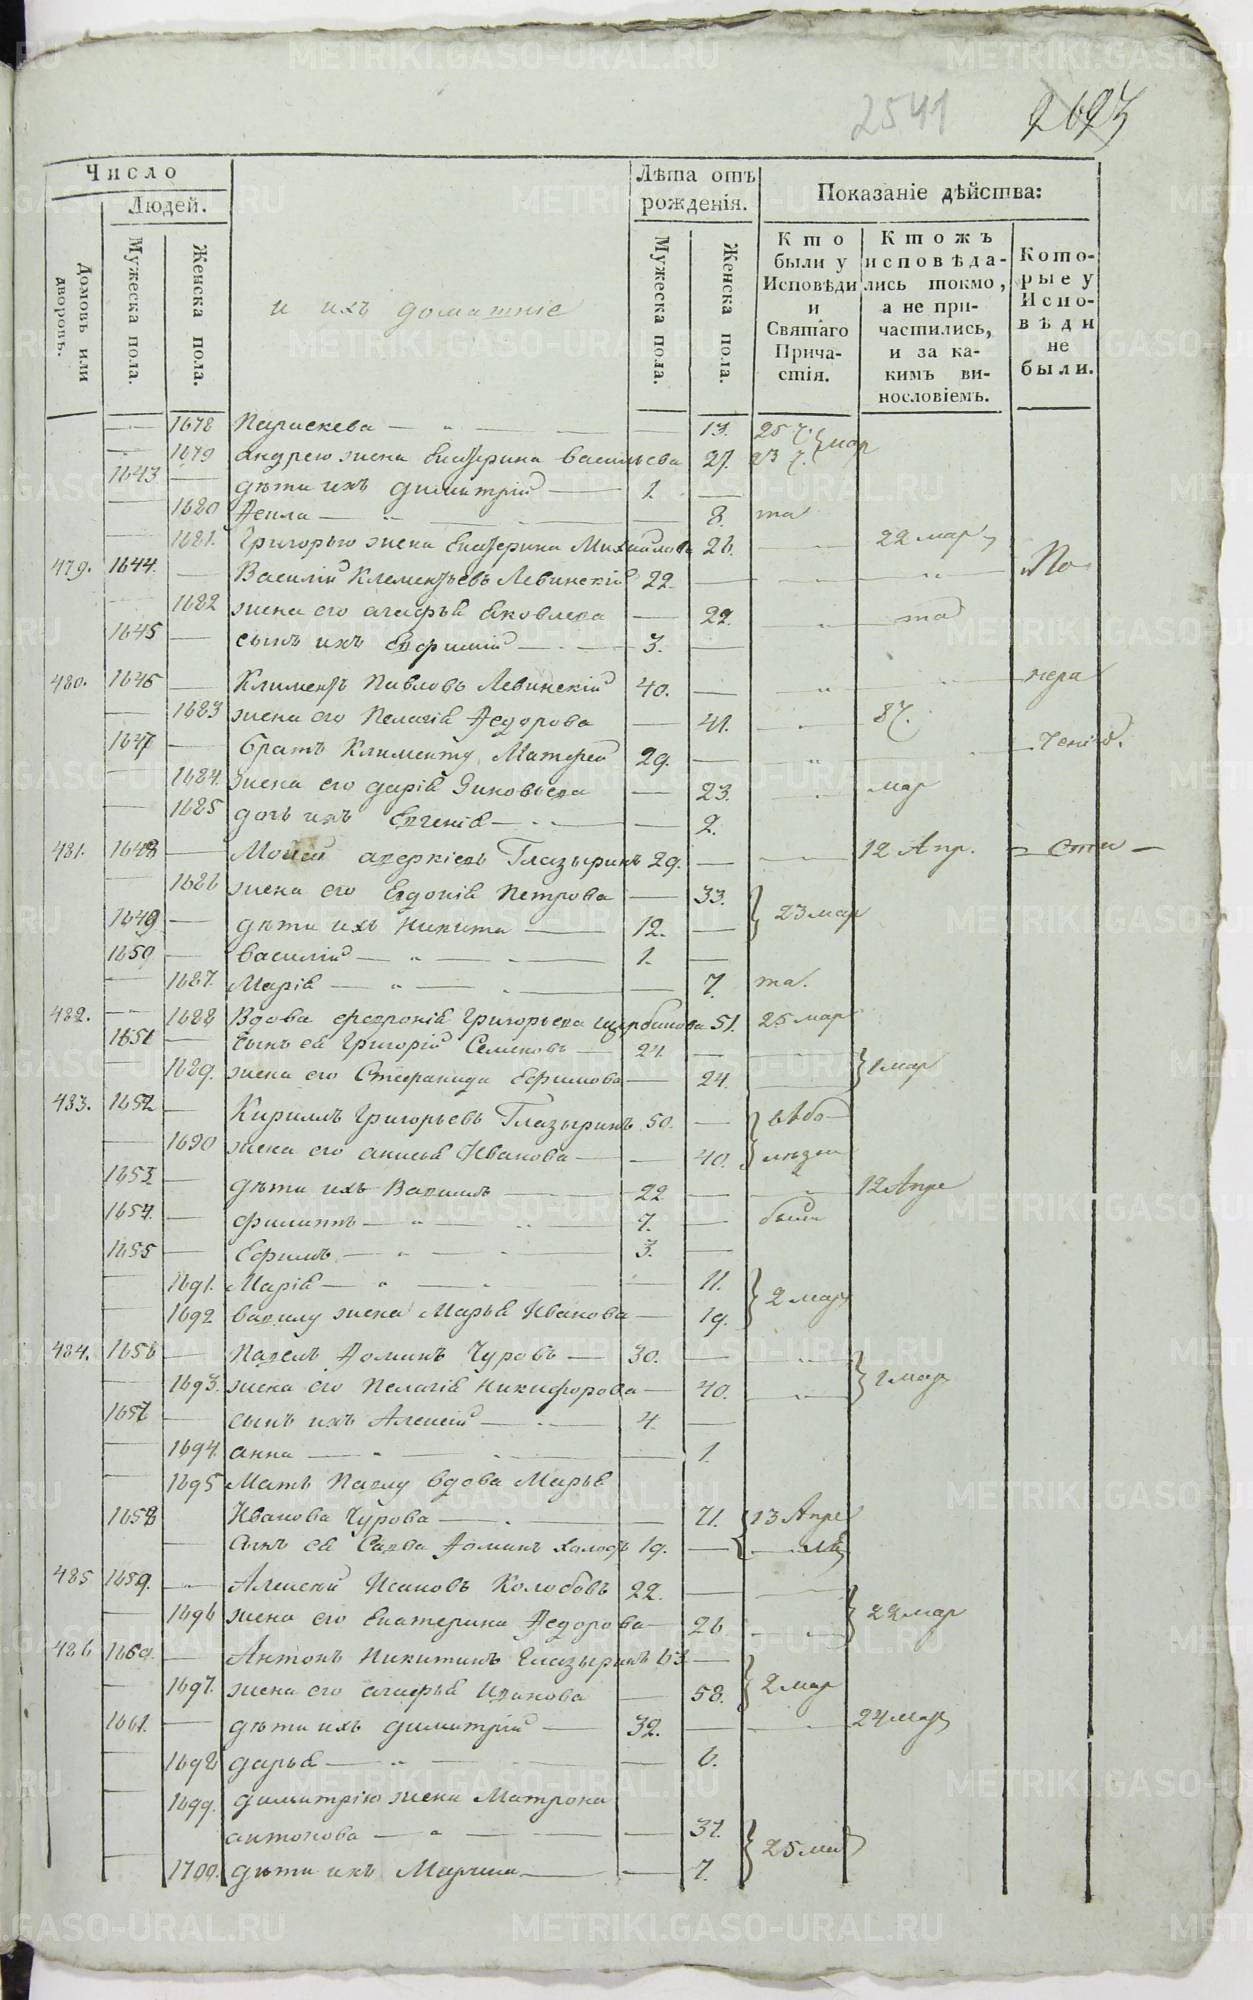 2541 2623
Число
Людей.
Домовъ или дворовъ.
Мужеска пола.
Женска пола.
и ихъ домашніе
Лѣта отъ рожденія.
Мужеска пола.
Женска пола.
Показаніе дѣйства:
Кто были у Исповѣди и Святаго Причастія.
Ктожъ исповѣдались токмо, а не причастились, и за какимъ винословіемъ.
Которые у Исповѣди не были.
1678 Параскева — 13. 25
1679 андрею жена Екатерина васильева 27. 23 мар
1643 дѣти ихъ димитрій — 1.
1680 — 8. та
1681. Григорью жена Екатерина Михайлова 26. 22 мар
479. 1644. Василій Клементьевъ Левинскій 22. По
1682 жена его агафья Яковлева — 22. та
1645 сынъ ихъ Евфимій — 3.
480. 1646 Климентъ Павловъ Левинскій 40. нера
1683 жена его Пелагія Ѳедорова — 41.
1647 братъ Клименту Матфей 29.
1684. жена его дарія Зиновьева — 23. мар
1685 дочь ихъ Евгенія — 2.
481. 1648 аверкіевъ Глазыринъ 29. 12 Апр.
1686 жена его Евдокія Петрова — 33.
23 мар
1649 дѣти ихъ Никита — 12.
1650 василій — 1.
1687. Марія — 7. та
482. 1688 Вдова феѳронія Григорьева щербакова 51. 25 мар
1651 сынъ ея Григорій Семеновъ — 24.
1 мар
1689. жена его Стефанида Ефимова — 24.
483. 1652 Кириллъ Григорьевъ Глазыринъ 50.
1690 жена его анисья Иванова — 40.
1653 дѣти ихъ Вавилъ — 22 12 Апре
1654. филиппъ — 7. были
1655 Ефимъ — 3.
1691. Марія — 11.
2 мар
1692 вавилу жена Марья Иванова — 19.
484. 1656 Павелъ Ѳоминъ Чуровъ — 30.
1 мар
1693. жена его Пелагія Никифорова — 40.
1657 сынъ ихъ Алексій — 4.
1694. анна — 1.
1695 Мать Павлу вдова Марья
1658 Иванова Чурова — 71. 13 Апре
сынъ ея Савва Ѳоминъ холостъ 19.
485 1659. Алексѣй Исаковъ Колобовъ 22.
22 мар
1696 жена его Екатерина Ѳедорова — 26
486 1660. Антонъ Никитинъ Глазыринъ 63
2 мар
1697. жена его агафья Иванова — 58.
1661. дѣти ихъ димитрій — 32. 24 мар
1698 дарья — 6.
1699. димитрію жена Матрона
антонова — 37.
25 ма
1700. дѣти ихъ Марина — 7.